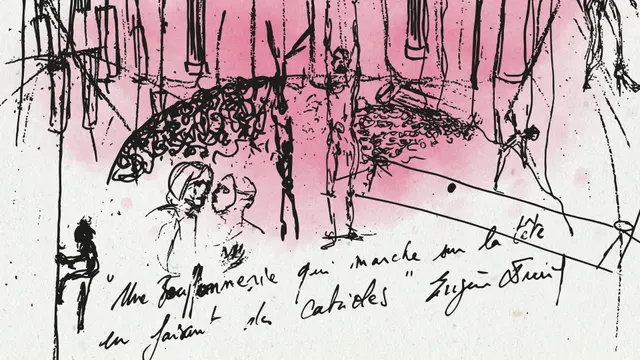 "Une bouffonnerie qui marche sur la tête
en faisant des cabrioles" Eugène